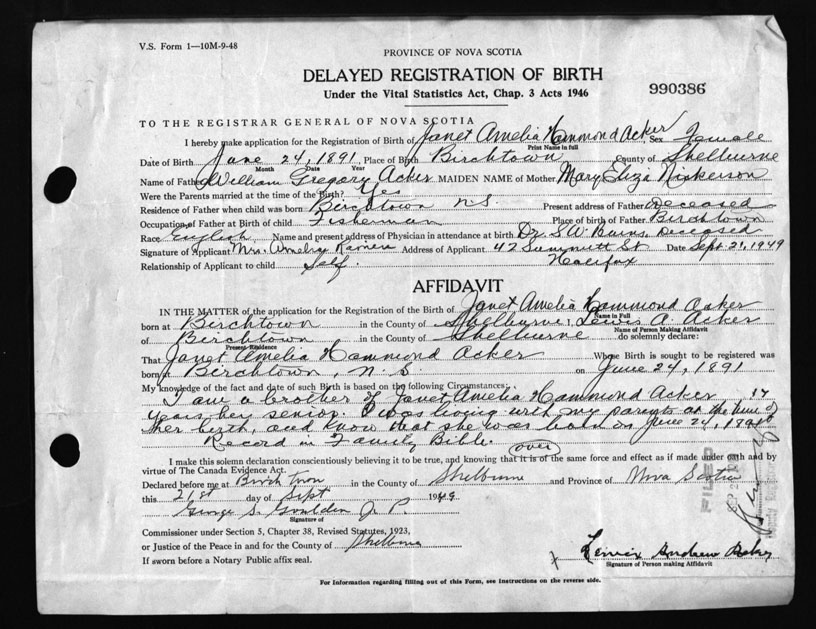 V.S. Form 1—10M-9-48
PROVINCE OF NOVA SCOTIA
DELAYED REGISTRATION OF BIRTH
Under the Vital Statistics Act, Chap. 3 Acts 1946
990386
TO THE REGISTRAR GENERAL OF NOVA SCOTIA
I hereby make application for the Registration of Birth of Janet Amelia Hammond Acker Sex Female
Print Name in full
Date of Birth June 24, 1891 Place of Birth Birchtown County of Shelburne
Month Date Year
Name of Father William Gregory Acker MAIDEN NAME of Mother Mary Eliza Nickerson
Were the Parents married at the time of the Birth? Yes
Residence of Father when child was born Birchtown N.S. Present address of Father Deceased
Occupation of Father at Birth of child Fisherman Place of birth of Father Birchtown
Race English Name and present address of Physician in attendance at birth Dr. S.W. Deceased
Signature of Applicant Mrs. Address of Applicant 42 Summitt St Date Sept. 21, 1949
Relationship of Applicant to child Self. Halifax
AFFIDAVIT
IN THE MATTER of the application for the Registration of Birth of Janet Amelia Hammond Acker
Name in Full
born at Birchtown in the County of Shelburne I, Lewis A. Acker
Name of Person Making Affidavit
of Birchtown in the County of Shelburne do solemnly declare:
Present Residence
That Janet Amelia Hammond Acker Whose Birth is sought to be registered was
born at Birchtown, N.S. on June 24, 1891
My knowledge of the fact and date of such Birth is based on the following Circumstances:
I am a brother of Janet Amelia Hammond Acker, 17
years her senior. I was living with my parents at the time of
her birth, and know that she was born on June 24, 1891
Record in Family Bible.
(over)
I make this solemn declaration conscientiously believing it to be true, and knowing that it is of the same force and effect as if made under oath and by
virtue of The Canada Evidence Act.
Declared before me at Birchtown in the County of Shelburne and Province of Nova Scotia
this 21st day of Sept 1949
George S. Goulden J.P.
Signature of
Commissioner under Section 5, Chapter 38, Revised Statutes, 1923,
or Justice of the Peace in and for the County of Shelburne
If sworn before a Notary Public affix seal.
FILED
Lewis Andrew Acker
Signature of Person making Affidavit
For Information regarding filling out of this Form, see Instructions on the reverse side.